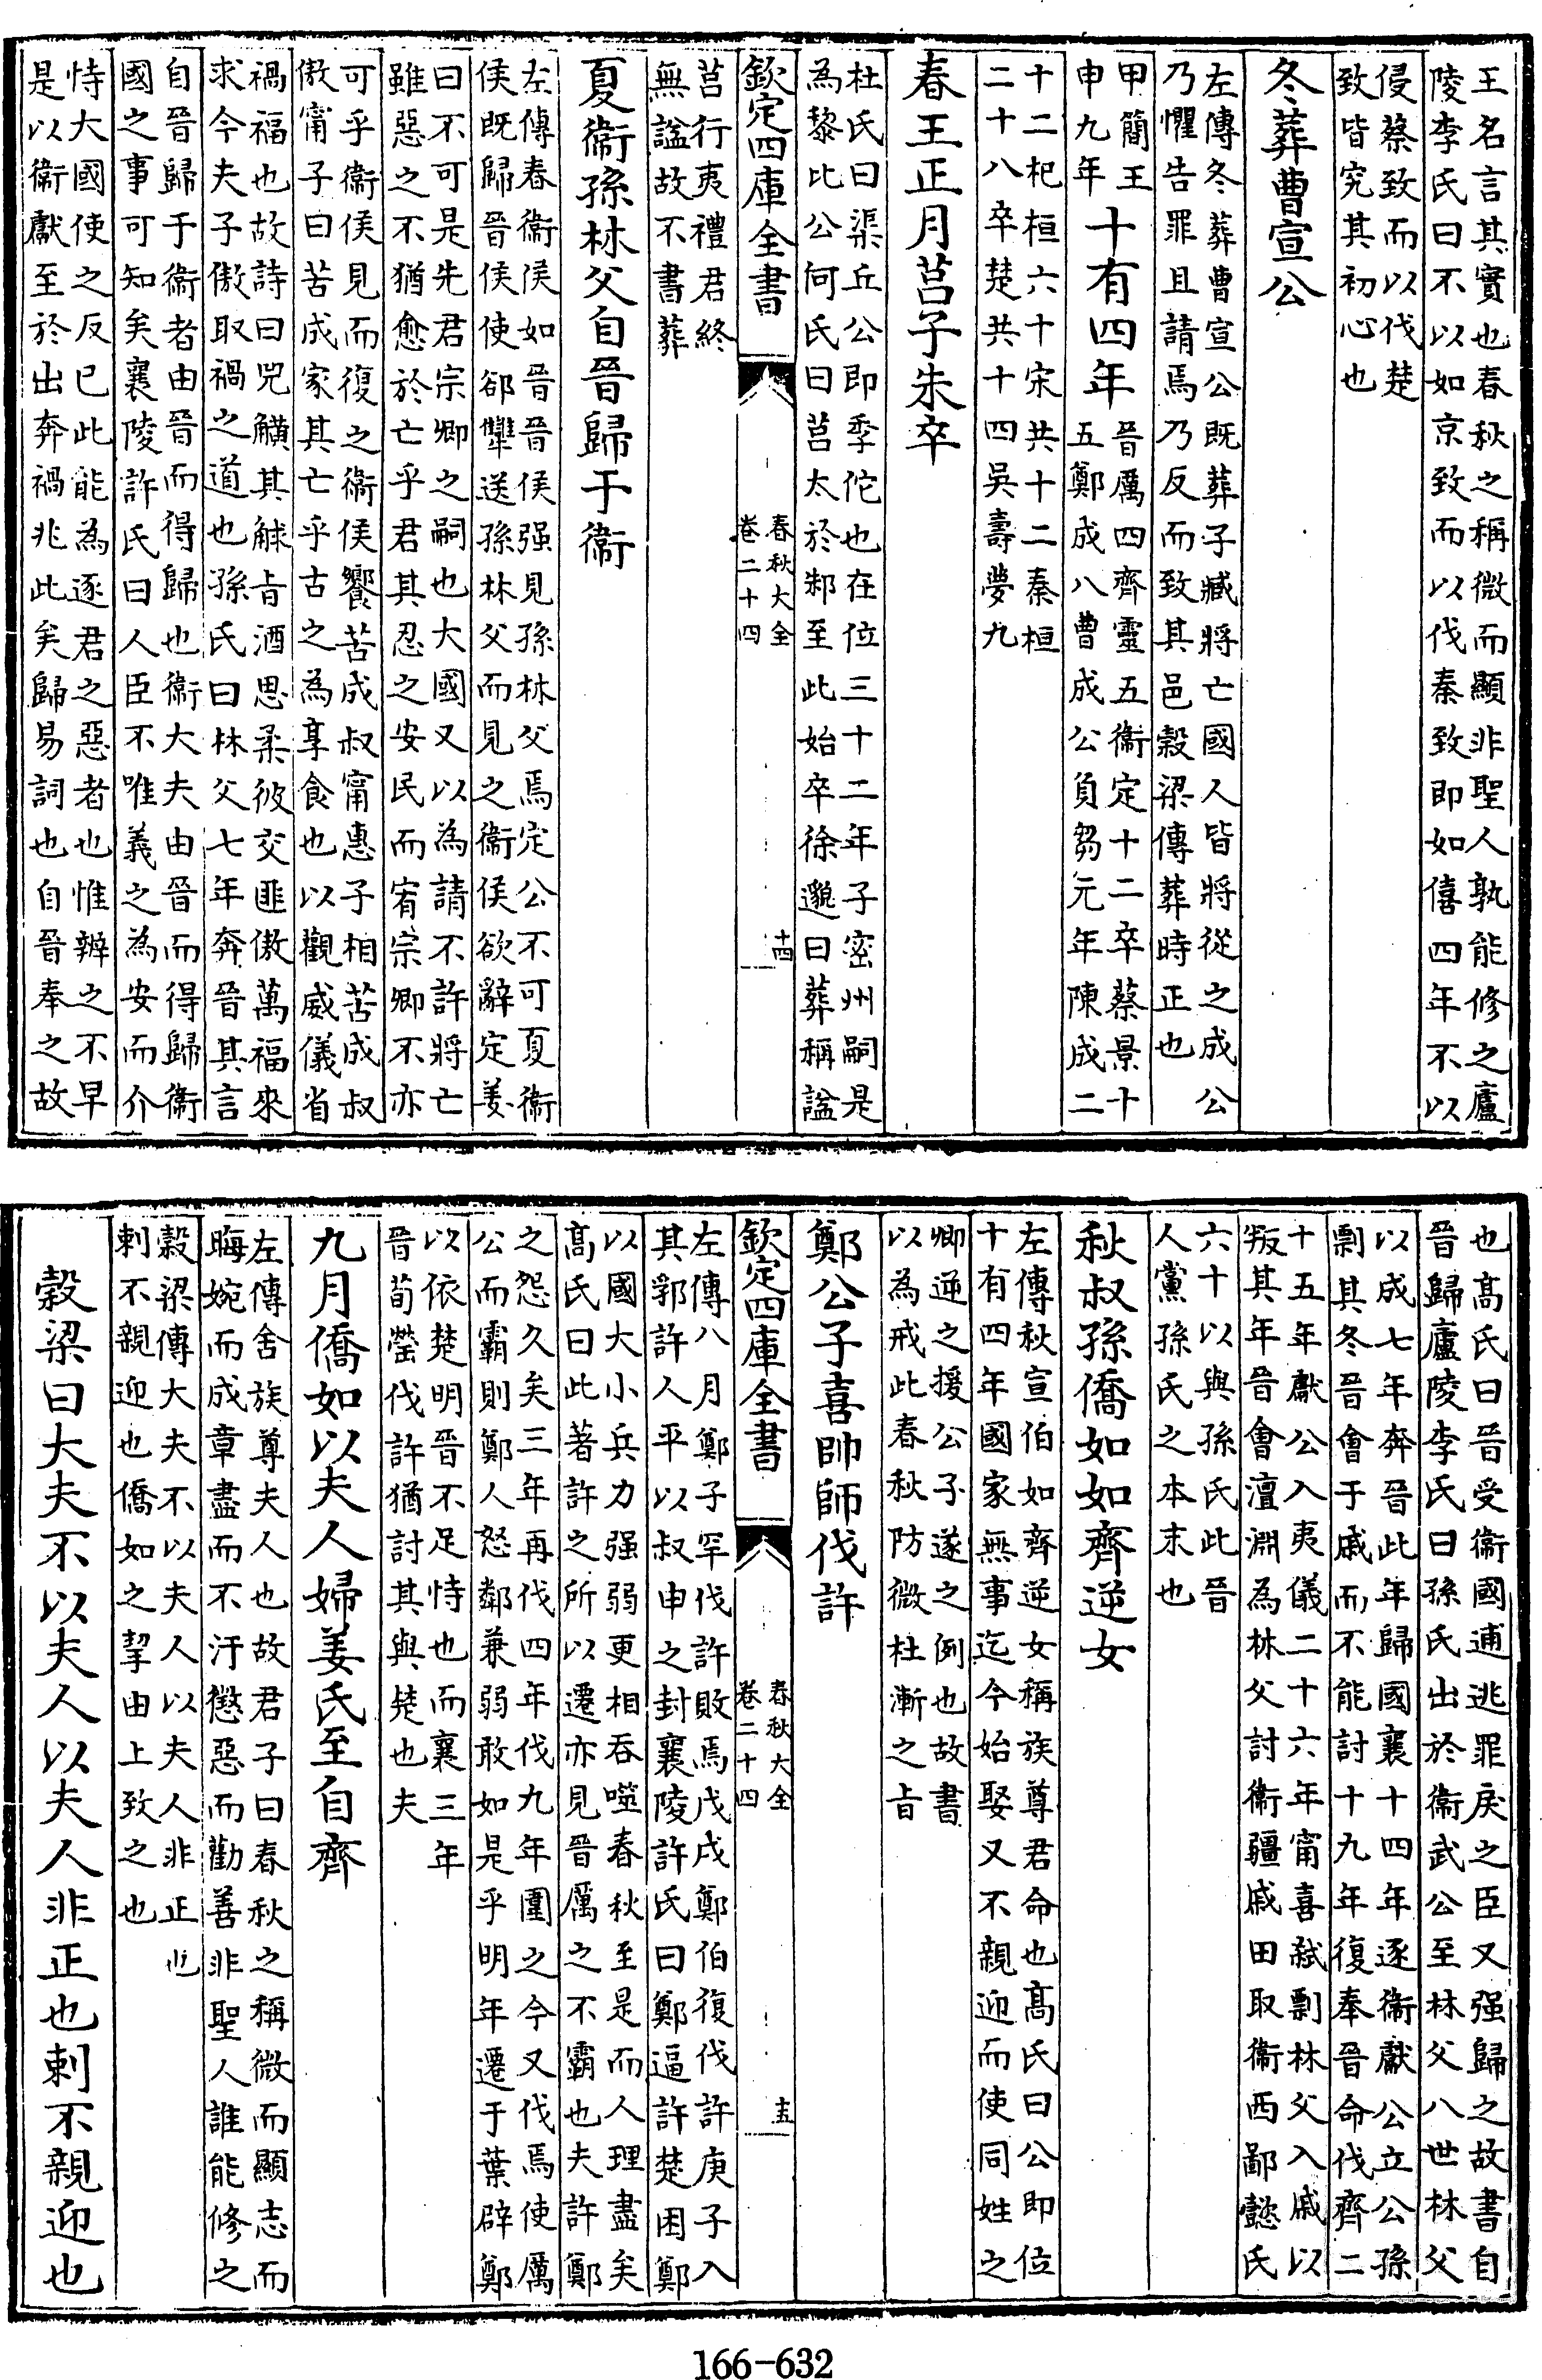 王名言其實也春秋之稱微而顯非聖人孰能修之廬
陵李氏曰不以如京致而以伐秦致即如僖四年不以
侵蔡致而以伐楚
致皆究其初心也
冬葬曹宣公
左傳冬葬曹宣公既葬子臧將亡國人皆將從之成公
乃懼告罪且請焉乃反而致其邑穀梁傳葬時正也
甲簡王
申九年
十有四年
晉厲四齊靈五衞定十二卒蔡景十
五鄭成八曹成公負芻元年陳成二
十二杞桓六十宋共十二秦桓
二十八卒楚共十四吳壽夢九
春王正月莒子朱卒
杜氏曰渠丘公即季佗也在位三十二年子密州嗣是
為黎比公何氏曰莒太於邾至此始卒徐邈曰葬稱諡
欽定四庫全書
春秋大全
卷二十四
十四
莒行夷禮君終
無諡故不書葬
夏衞孫林父自晉歸于衞
左傳春衞侯如晉晉侯强見孫林父焉定公不可夏衞
侯既歸晉侯使郤犨送孫林父而見之衞侯欲辭定姜
曰不可是先君宗卿之嗣也大國又以為請不許將亡
雖惡之不猶愈於亡乎君其忍之安民而宥宗卿不亦
可乎衞侯見而復之衞侯饗苦成叔甯惠子相苦成叔
傲甯子曰苦成家其亡乎古之為享食也以觀威儀省
禍福也故詩曰兕觵其觩旨酒思柔彼交匪傲萬福來
求今夫子傲取禍之道也孫氏曰林父七年奔晉其言
自晉歸于衞者由晉而得歸也衞大夫由晉而得歸衞
國之事可知矣襄陵許氏曰人臣不唯義之為安而介
恃大國使之反已此能為逐君之惡者也惟辨之不早
是以衞獻至於出奔禍兆此矣歸易詞也自晉奉之故
也高氏曰晉受衞國逋逃罪戾之臣又强歸之故書自
晉歸廬陵李氏曰孫氏出於衞武公至林父八世林父
以成七年奔晉此年歸國襄十四年逐衞獻公立公孫
剽其冬晉會于戚而不能討十九年復奉晉命伐齊二
十五年獻公入夷儀二十六年甯喜弒剽林父入戚以
叛其年晉會澶淵為林父討衞疆戚田取衞西鄙懿氏
六十以與孫氏此晉
人黨孫氏之本末也
秋叔孫僑如如齊逆女
左傳秋宣伯如齊逆女稱族尊君命也高氏曰公即位
十有四年國家無事迄今始娶又不親迎而使同姓之
卿逆之援公子遂之例也故書
以為戒此春秋防微杜漸之旨
鄭公子喜帥師伐許
欽定四庫全書
春秋大全
卷二十四
十五
左傳八月鄭子罕伐許敗焉戊戌鄭伯復伐許庚子入
其郛許人平以叔申之封襄陵許氏曰鄭逼許楚困鄭
以國大小兵力强弱更相吞噬春秋至是而人理盡矣
高氏曰此著許之所以遷亦見晉厲之不霸也夫許鄭
之怨久矣三年再伐四年伐九年圍之今又伐焉使厲
公而霸則鄭人怒鄰兼弱敢如是乎明年遷于葉辟鄭
以依楚明晉不足恃也而襄三年
晉荀罃伐許猶討其與楚也夫
九月僑如以夫人婦姜氏至自齊
左傳舍族尊夫人也故君子曰春秋之稱微而顯志而
晦婉而成章盡而不汙懲惡而勸善非聖人誰能修之
穀梁傳大夫不以夫人以夫人非正也
刺不親迎也僑如之挈由上致之也
穀梁曰大夫不以夫人以夫人非正也刺不親迎也
166-632